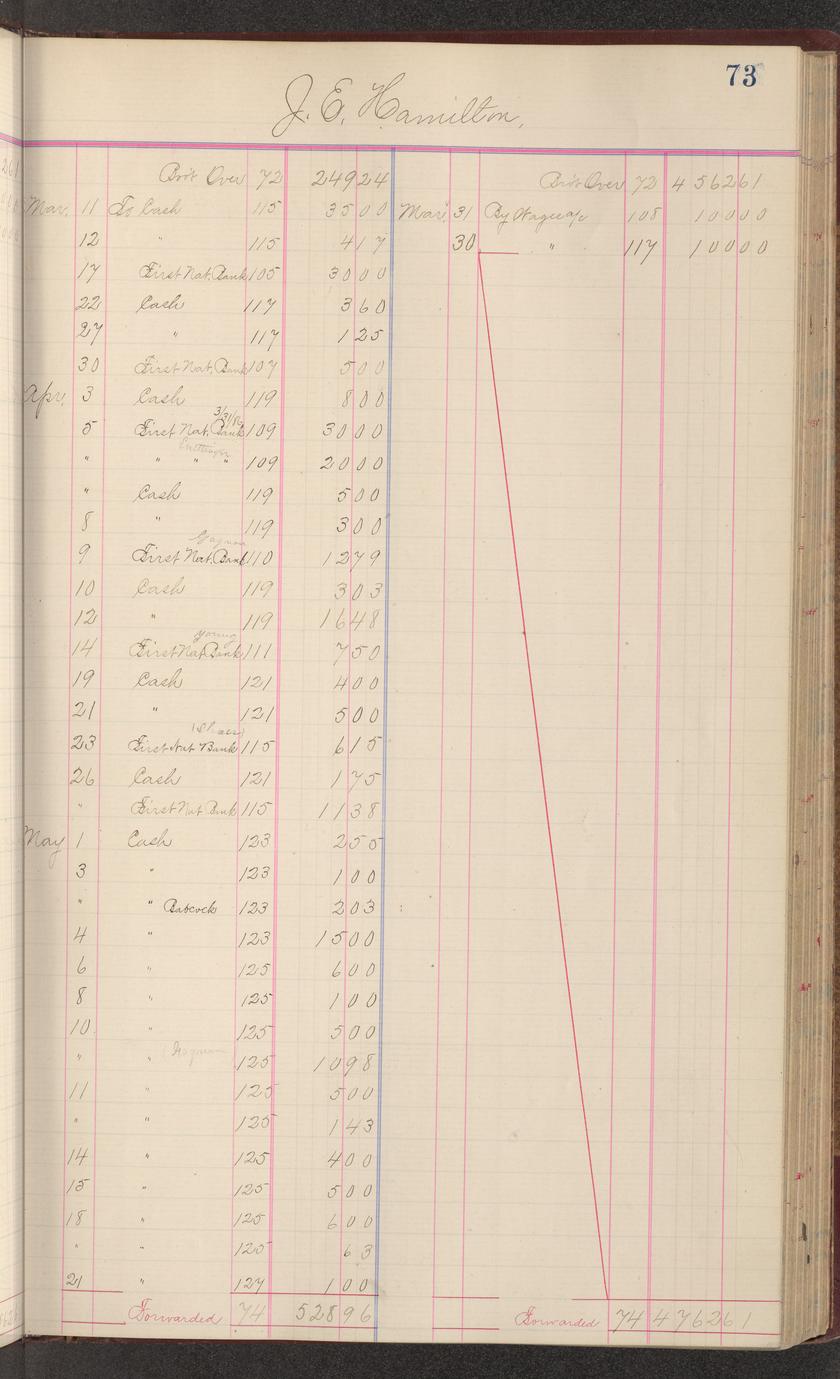 73
J. E. Hamilton,
Bro't Over 72 24924
Mar. 11 To Cash 115 3500
12 " 115 417
17 First Nat. Bank 105 3000
22 Cash 117 360
27 " 117 125
30 First Nat. Bank 107 500
Apr. 3 Cash 119 800
3/31/86
5 First Nat. Bank 109 3000
" " " " 109 2000
" Cash 119 500
8 " 119 300
9 First Nat. Bank 110 1279
10 Cash 119 303
12 " 119 1648
Young
14 First Nat. Bank 111 750
19 Cash 121 400
21 " 121 500
23 First Nat Bank 115 615
26 Cash 121 175
" First Nat Bank 115 1138
May 1 Cash 123 255
3 " 123 100
" " Babcock 123 203
4 " 123 1500
6 " 125 600
8 " 125 100
10 " 125 500
" " 125 1098
11 " 125 500
" " 125 143
14 " 125 400
15 " 125 500
18 " 125 600
" " 125 63
21 " 127 100
Forwarded 74 52896
Bro't Over 72 456261
Mar. 31 By Wages a/c 108 10000
30 " 117 10000
Forwarded 74 476261